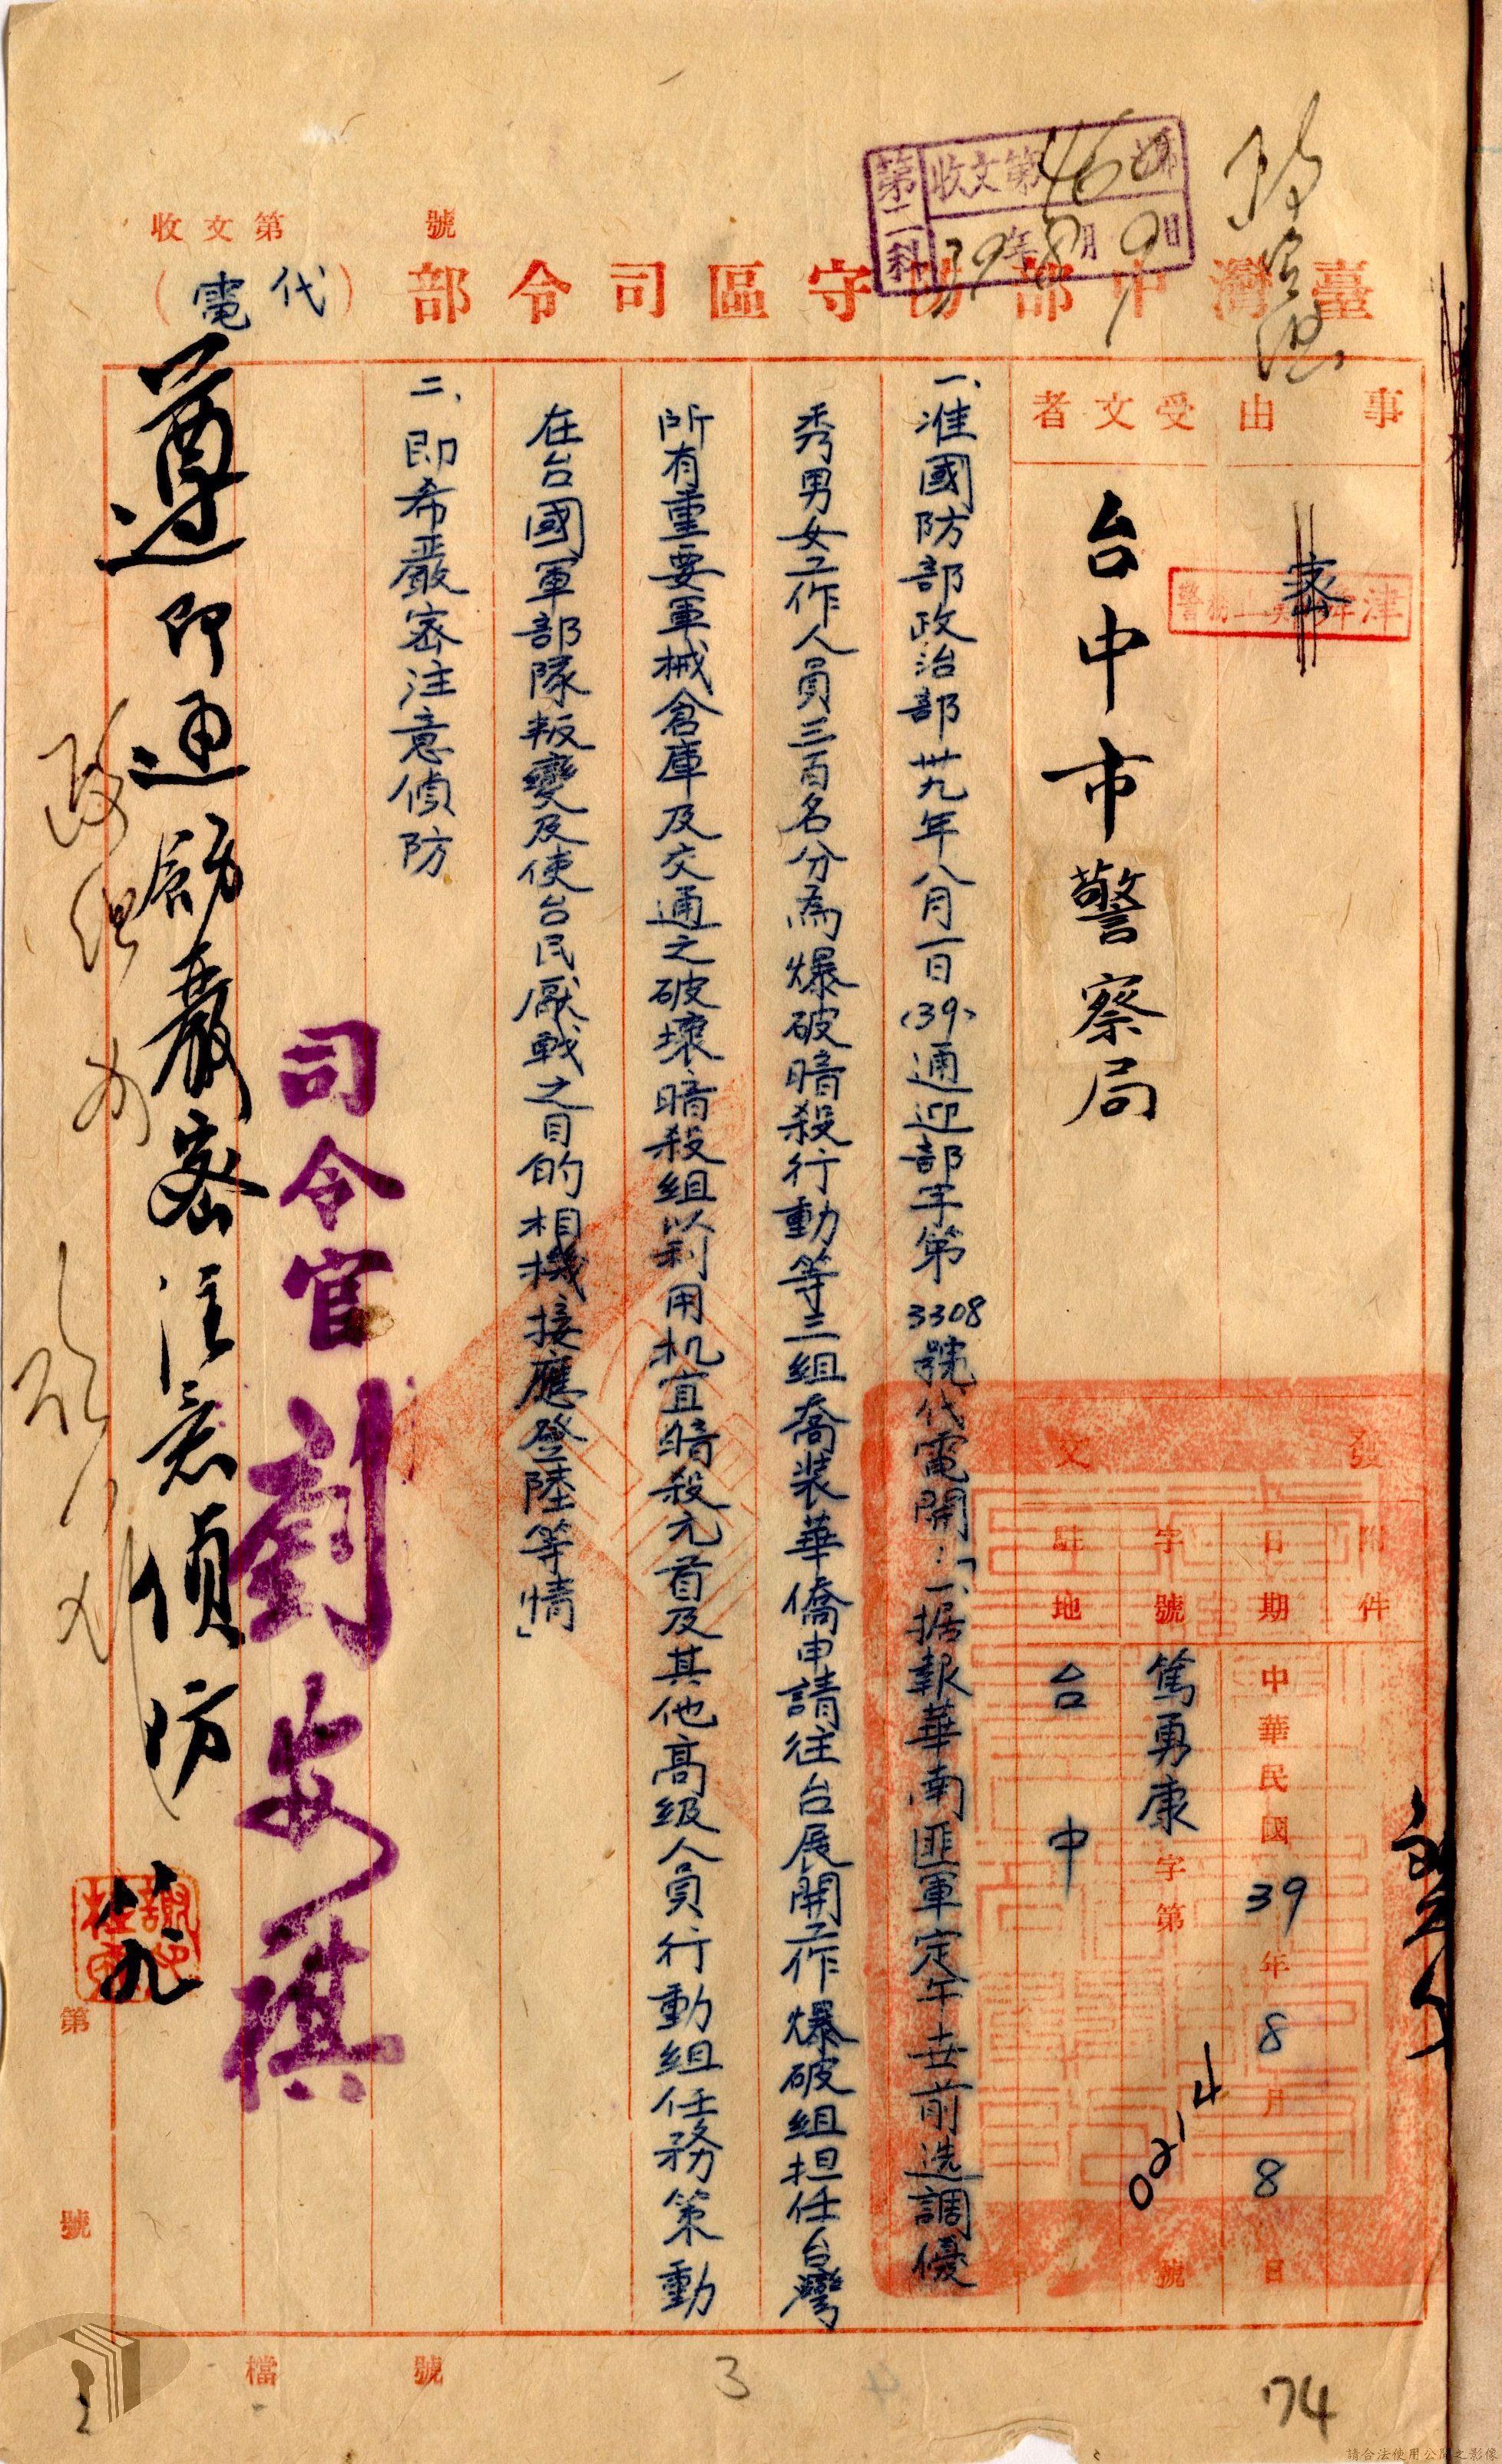 收文第 號
臺灣中部防守區司令部（代電）
第二科
收文第 號
39年8月9日
事由
密
受文者
台中市警察局
發文
附件
日期 中華民國39年8月8日
字號 篤勇康字第0214號
駐地 台中
一、准國防部政治部卅九年八月一日(39)通迎部字第3308號代電開：「一、据報華南匪軍定午世前选調優
秀男女工作人員三百名分為爆破暗殺行動等三組喬裝華僑申請往台展開工作爆破組担任台灣
所有重要軍械倉庫及交通之破壞暗殺組以利用机宜暗殺元首及其他高级人員行動組任務策動
在台國軍部隊叛變及使台民厭戰之目的相機接應登陸等情」
二、即希嚴密注意偵防
司令官劉安祺
遵即通飭嚴密注意偵防
八九
第 號
檔 號
3
74
2
請合法使用公開之影像